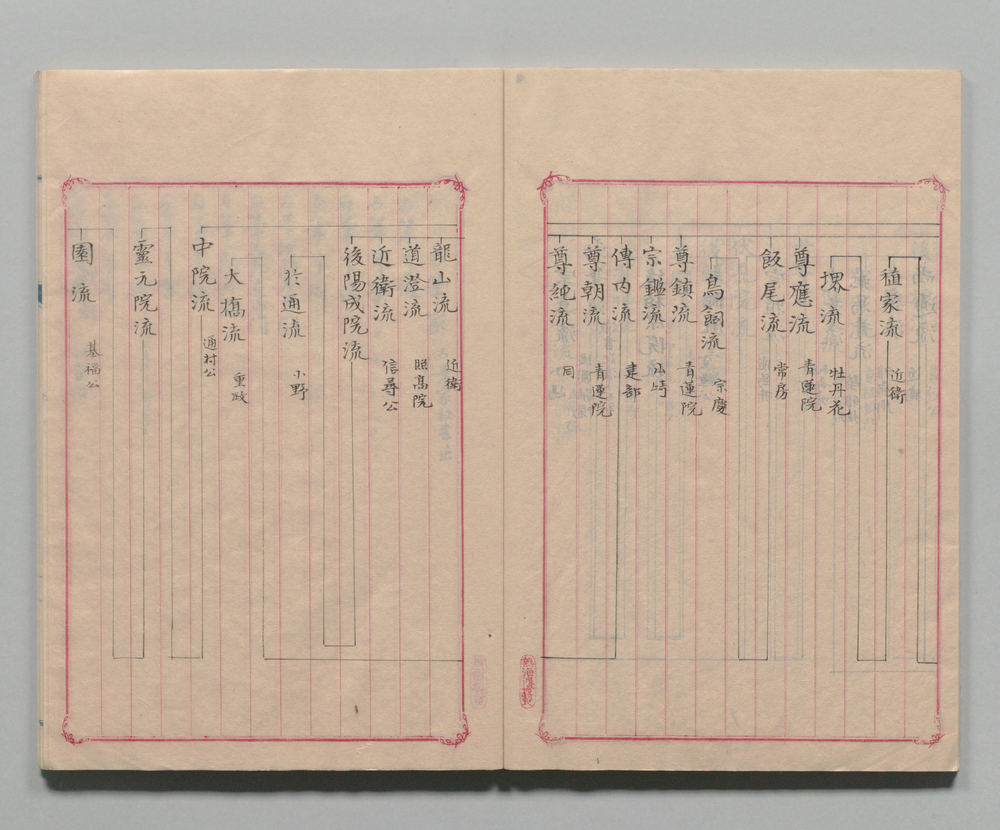 植家流 近衛
堺流 牡丹花
尊應流 青蓮院
飯尾流 常房
鳥飼流 宗慶
尊鎮流 青蓮院
宗鑑流 山崎
傳内流 建部
尊朝流 青蓮院
尊純流 同
龍山流 近衛
道澄流 照高院
近衛流 信尋公
後陽成院流
於通流 小野
大橋流 重政
中院流 通村公
靈元院流
園流 基福公